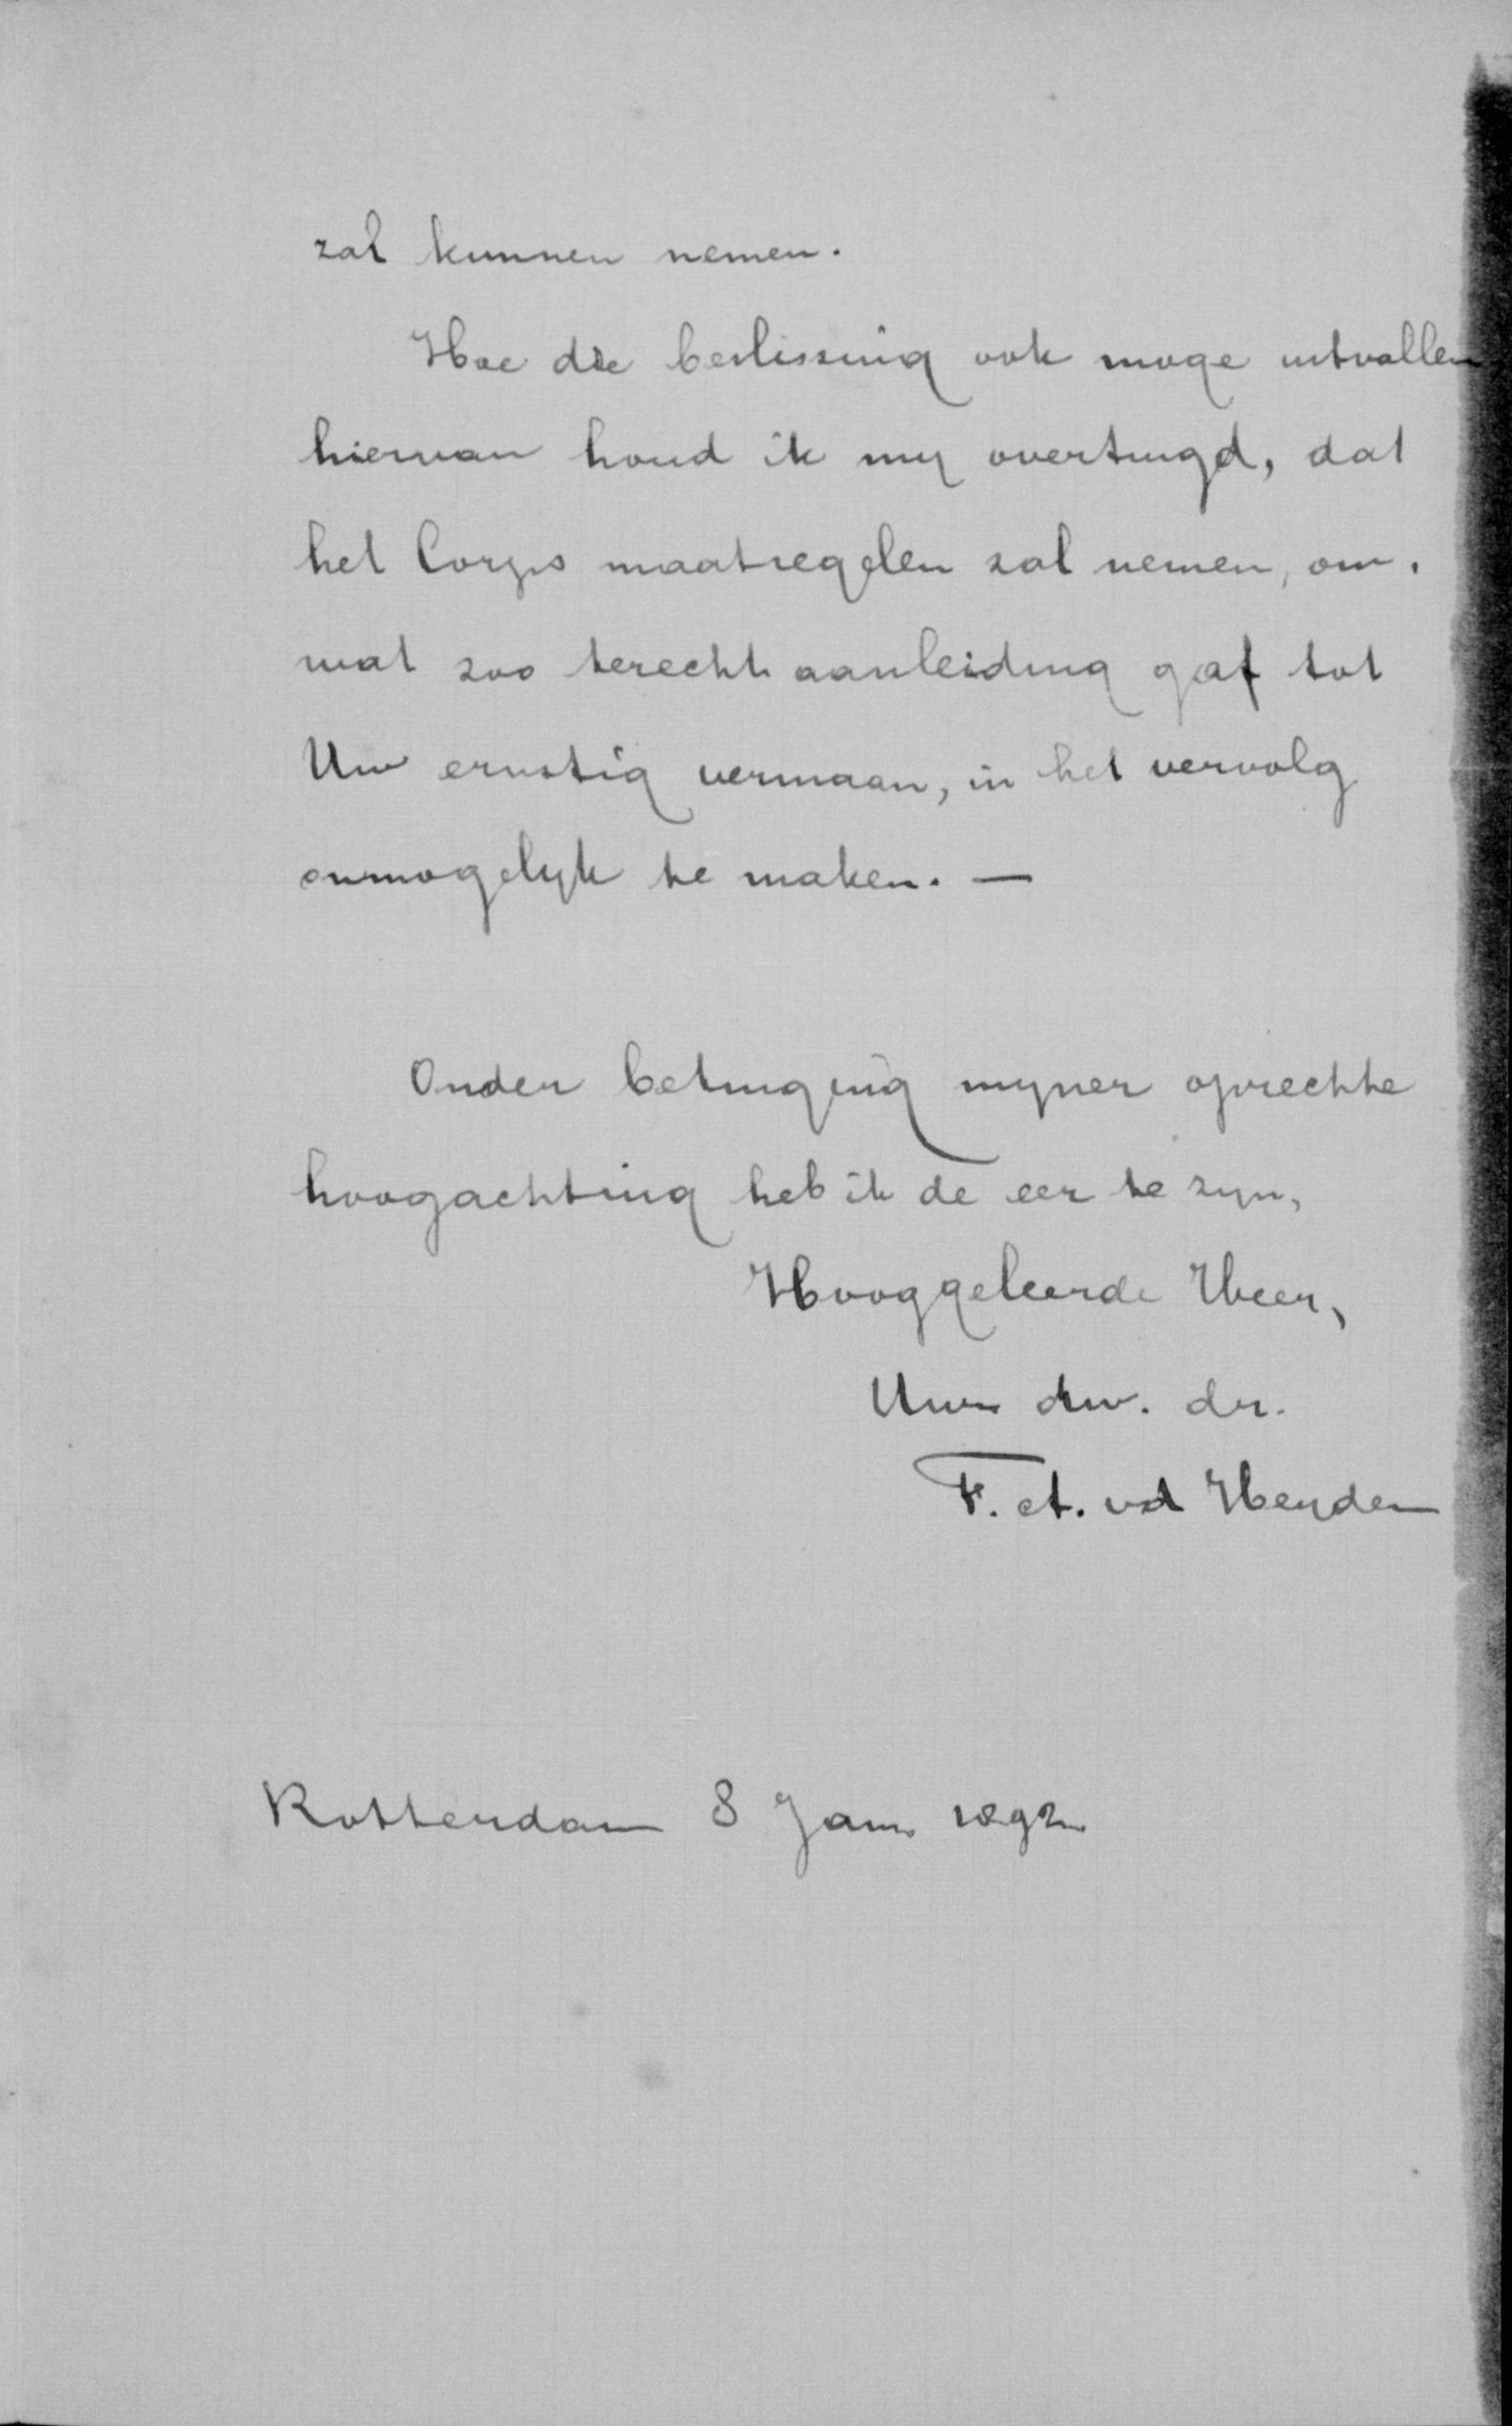 zal kunnen nemen.
Hoe die beslissing ook moge uitvallen
hiervan houd ik my overtuigd, dat
het Corps maatregelen zal nemen, om,
wat zoo terecht aanleiding gaf tot
Uw ernstig vermaan, in het vervolg
onmogelyk te maken. —
Onder betuiging myner oprechte
hoogachting heb ik de eer te zyn,
Hooggeleerde Heer,
Uw dw. dr.
F. A. vd Heyden
Rotterdam 8 Jan. 1892